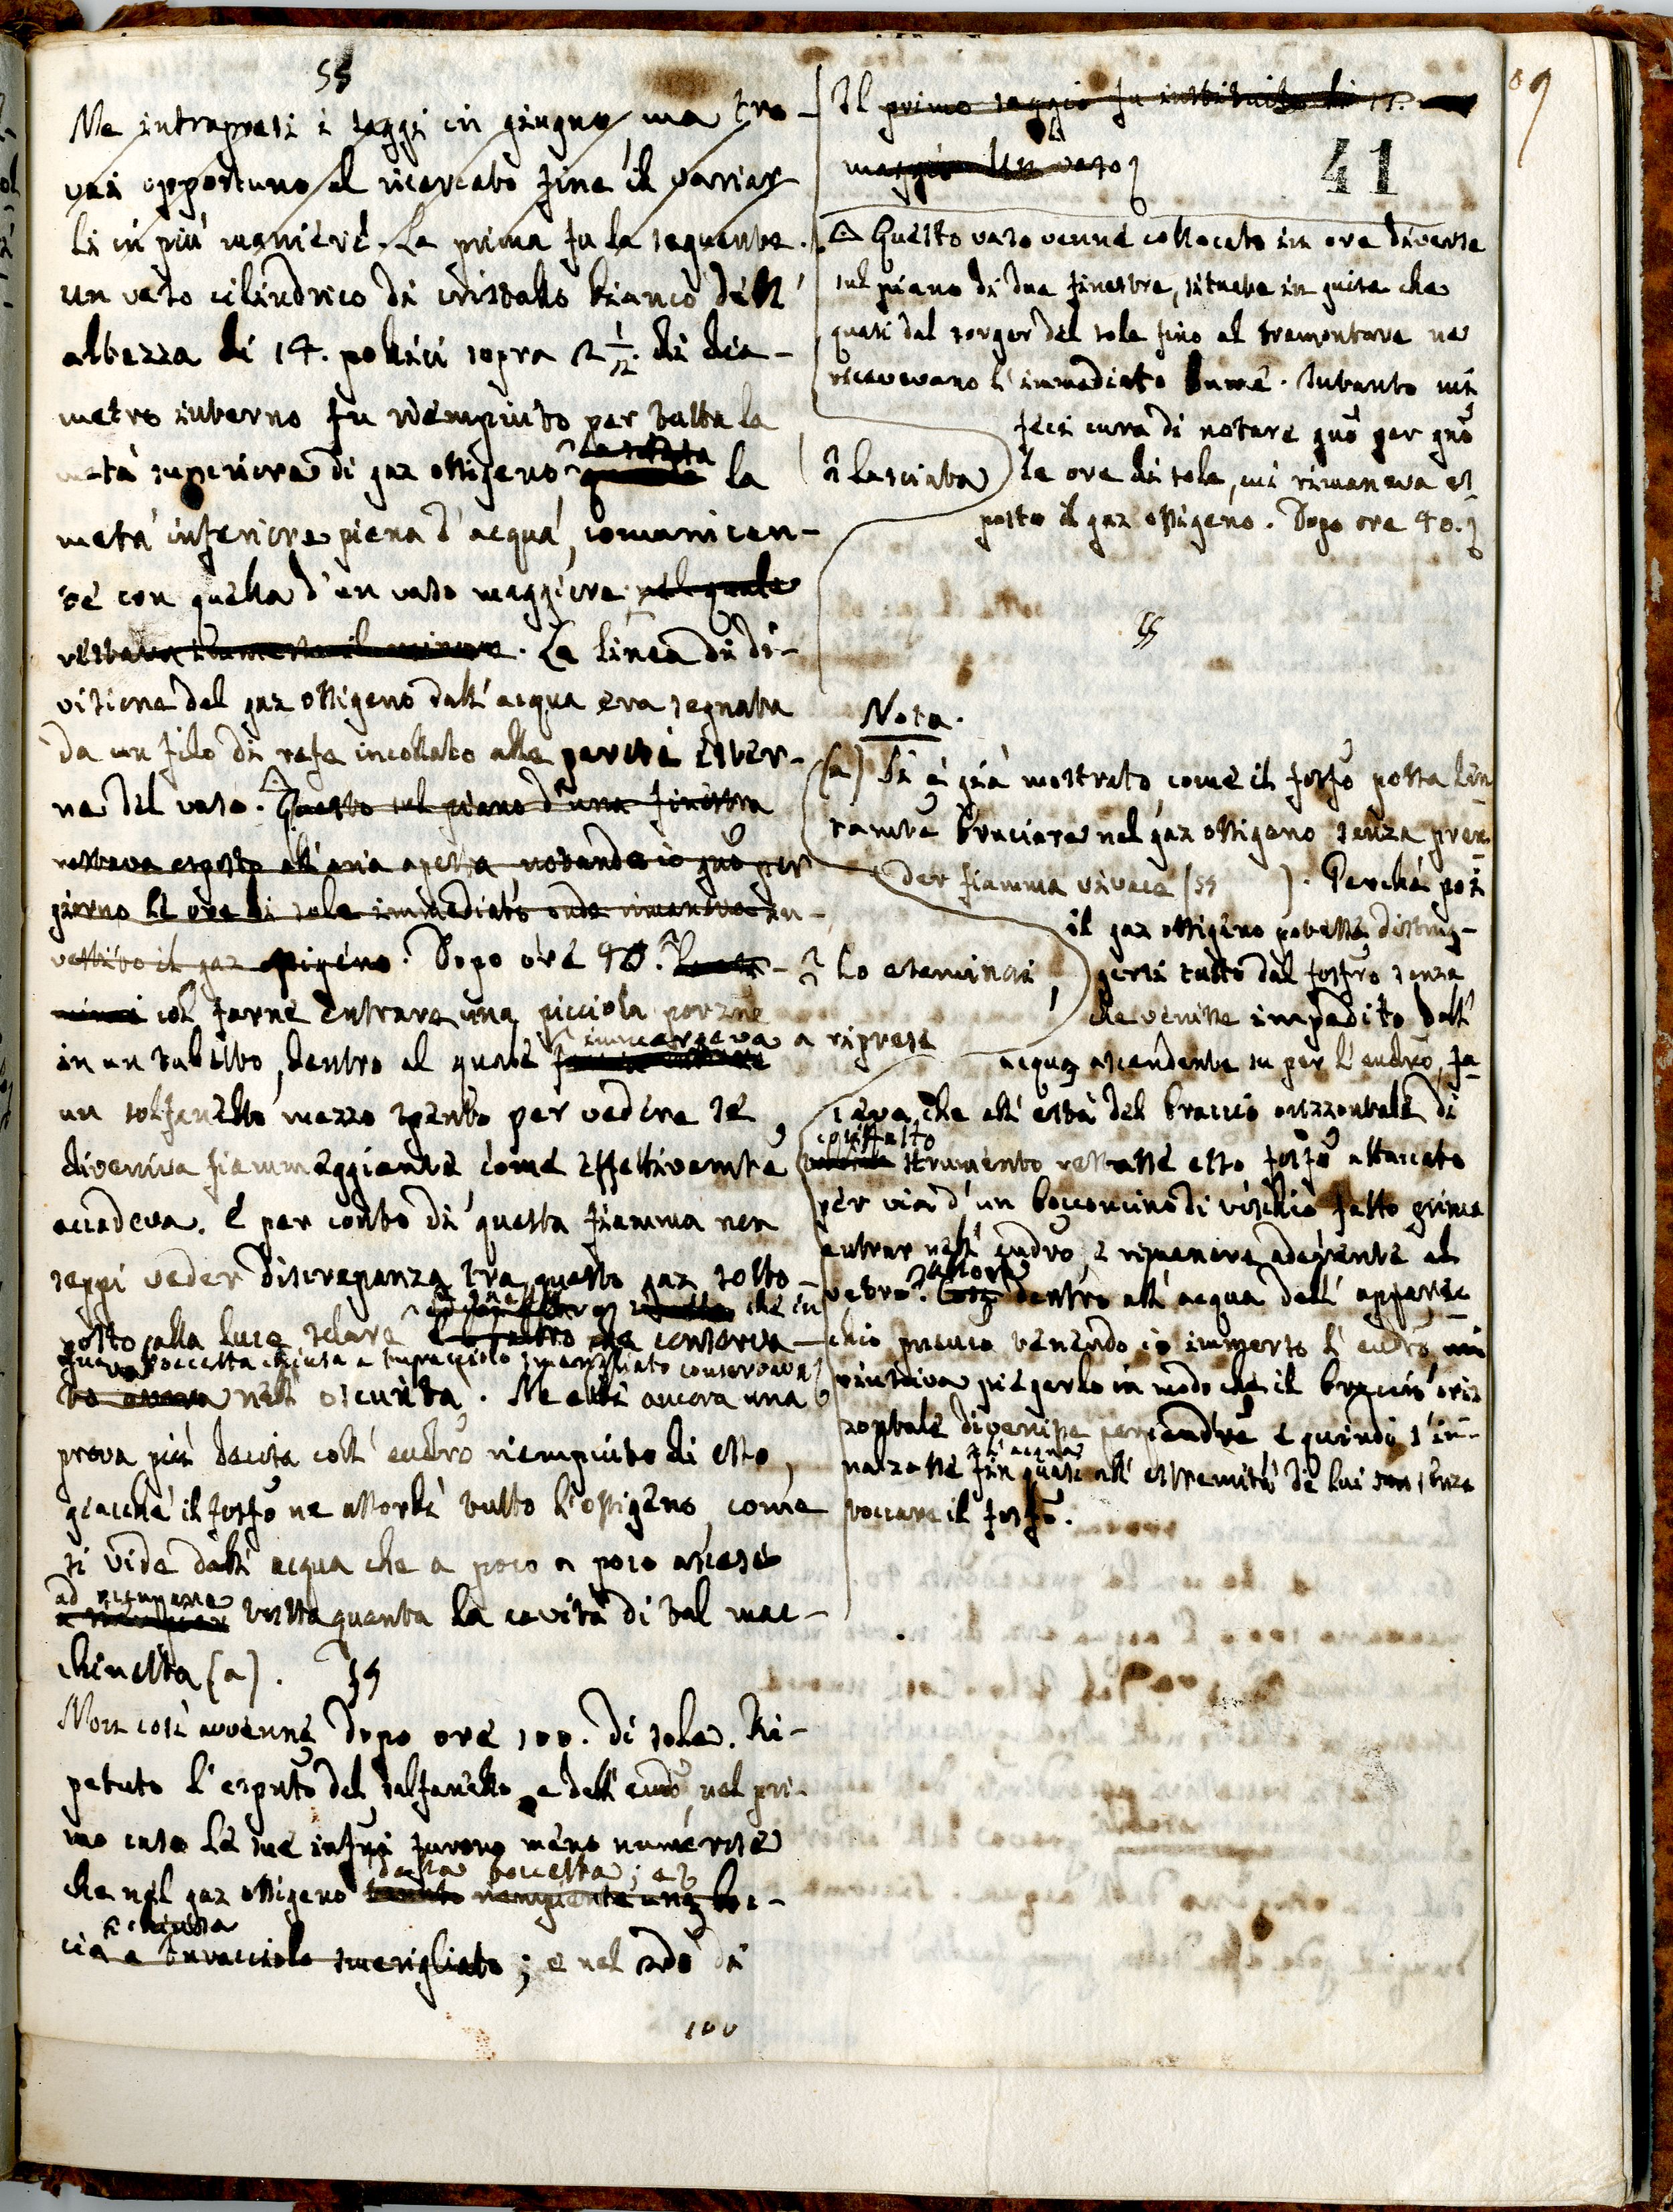 89
41
§§
Ne intrapresi i saggi in giugno, ma tro-
vai opportuno al ricercato fine il variar-
li in più maniere. La prima fu la seguente.
un vaso cilindrico di cristallo bianco dell'
altezza di 14. pollici sopra 2 1/12. di dia-
metro interno fu riempiuto per tutta la
metà superiore di gaz ossigeno lasciata la
metà inferiore piena d'acqua, comunican-
te con quella d'un vaso maggiore, nel quale
restava il minore. La linea di di-
visione del gaz ossigeno dall'acqua era segnata
da un filo di refe incollato alle pareti ester-
ne del vaso. Questo sul piano d'una finestra
restava esposto all'aria aperta notando io gno per
giorno le ore di sole immediato onde rimaneva in-
vestito il gaz ossigeno. Dopo ore 40.
col farne entrare una picciola porzne
immergeva a riprese
in un tubetto, dentro al quale
un solfanello mezzo spento per vedere se
diveniva fiammeggiante, come effettivamte
accadeva. E per conto di questa fiamma non
seppi veder discrepanza tra questo gaz sotto-
posto alla luce solare che in
boccetta chiusa a turacciolo smerigliato conservava
nell'oscurità. Ne ebbi ancora una
prova più decisa coll'eudro riempiuto di esso,
giacchè il fosfo ne assorbì tutto l'ossigeno, come
si vide dall'acqua che a poco a poco ascese
ad riempiere tutta quanta la cavità di tal mac-
chinetta (a). §§
Non così avvenne dopo ore 100. di sole. Ri-
petuto l'esputo del solfanello, e dell'eudro, nel pri-
mo caso le sue furono meno numerose
detta boccetta; e
che nel gaz ossigeno tenuto riempiente una boc-
chiusa
cia a turacciolo smerigliato; e nel 2do di
100
Il primo saggio fu instituito li 15.
maggio Un vaso
Questo vaso venne collocato in ore diverse
sul piano di due finestre, situate in guisa che
quasi dal sorger del sole fino al tramontare ne
ricevevano l'immediato lume. Intanto mi
feci cura di notare gno per gno
lasciata
le ore di sole, cui rimaneva es-
posto il gaz ossigeno. Dopo ore 40.
§§
Nota.
(a) Si è già mostrato come il fosfo possa len-
tamte bruciare nel gaz ossigeno senza pren-
der fiamma vivace (§§ ). Perchè poi
il gaz ossigeno potesse distrug-
Lo esaminai
gersi tutto dal fosfro senza
che venisse impedito dall'
acqua ascendente su per l'eudro, fa-
ceva che all'està del braccio orizzontale di
cosiffatto
strumento restasse esso fosfo attaccato
per via d'un bocconcino di vischio fatto prima
entrar nell'eudro, e rimanere aderente al
vetro. Allora dentro all'acqua dell'apparec-
chio pneuco tenendo io immerso l'eudro, mi
riusciva piegarlo in modo che il braccio oriz
zontale divenisse perpendre e quindi s'in-
l'acqua
nalzasse fin quasi all'estremità di lui senza
toccare il fosfo.